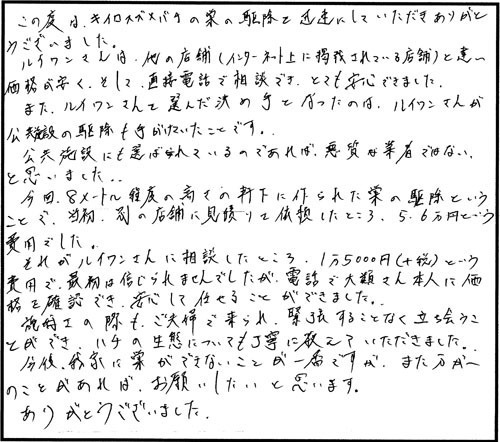 この度は、キイロスズメバチの巣の駆除を迅速にしていただきありがと
うございました。
ルイワンさんは、他の店舗(インターネット上に掲載されている店舗)と違い
価格が安く、そして、直接電話で相談でき、とても安心できました。
また、ルイワンさんを選んだ決め手となったのは、ルイワンさんが
公共施設の駆除も手がけていたことです。
公共施設にも選ばれているのであれば、悪質な業者ではない、
と思いました。
今回、8メートル程度の高さの軒下に作られた巣の駆除という
ことで、当初、別の店舗に見積りを依頼したところ、5、6万円という
費用でした。
それがルイワンさんに相談したところ、1万5000円(+税)という
費用で、最初は信じられませんでしたが、電話で大類さん本人に価
格を確認でき、安心して任せることができました。
施行の際も、ご夫婦で来られ、緊張することなく立ち会うこ
とができ、ハチの生態についても丁寧に教えていただきました。
今後、我家に巣ができないことが一番ですが、また万が一
のことがあれば、お願いしたいと思います。
ありがとうございました。